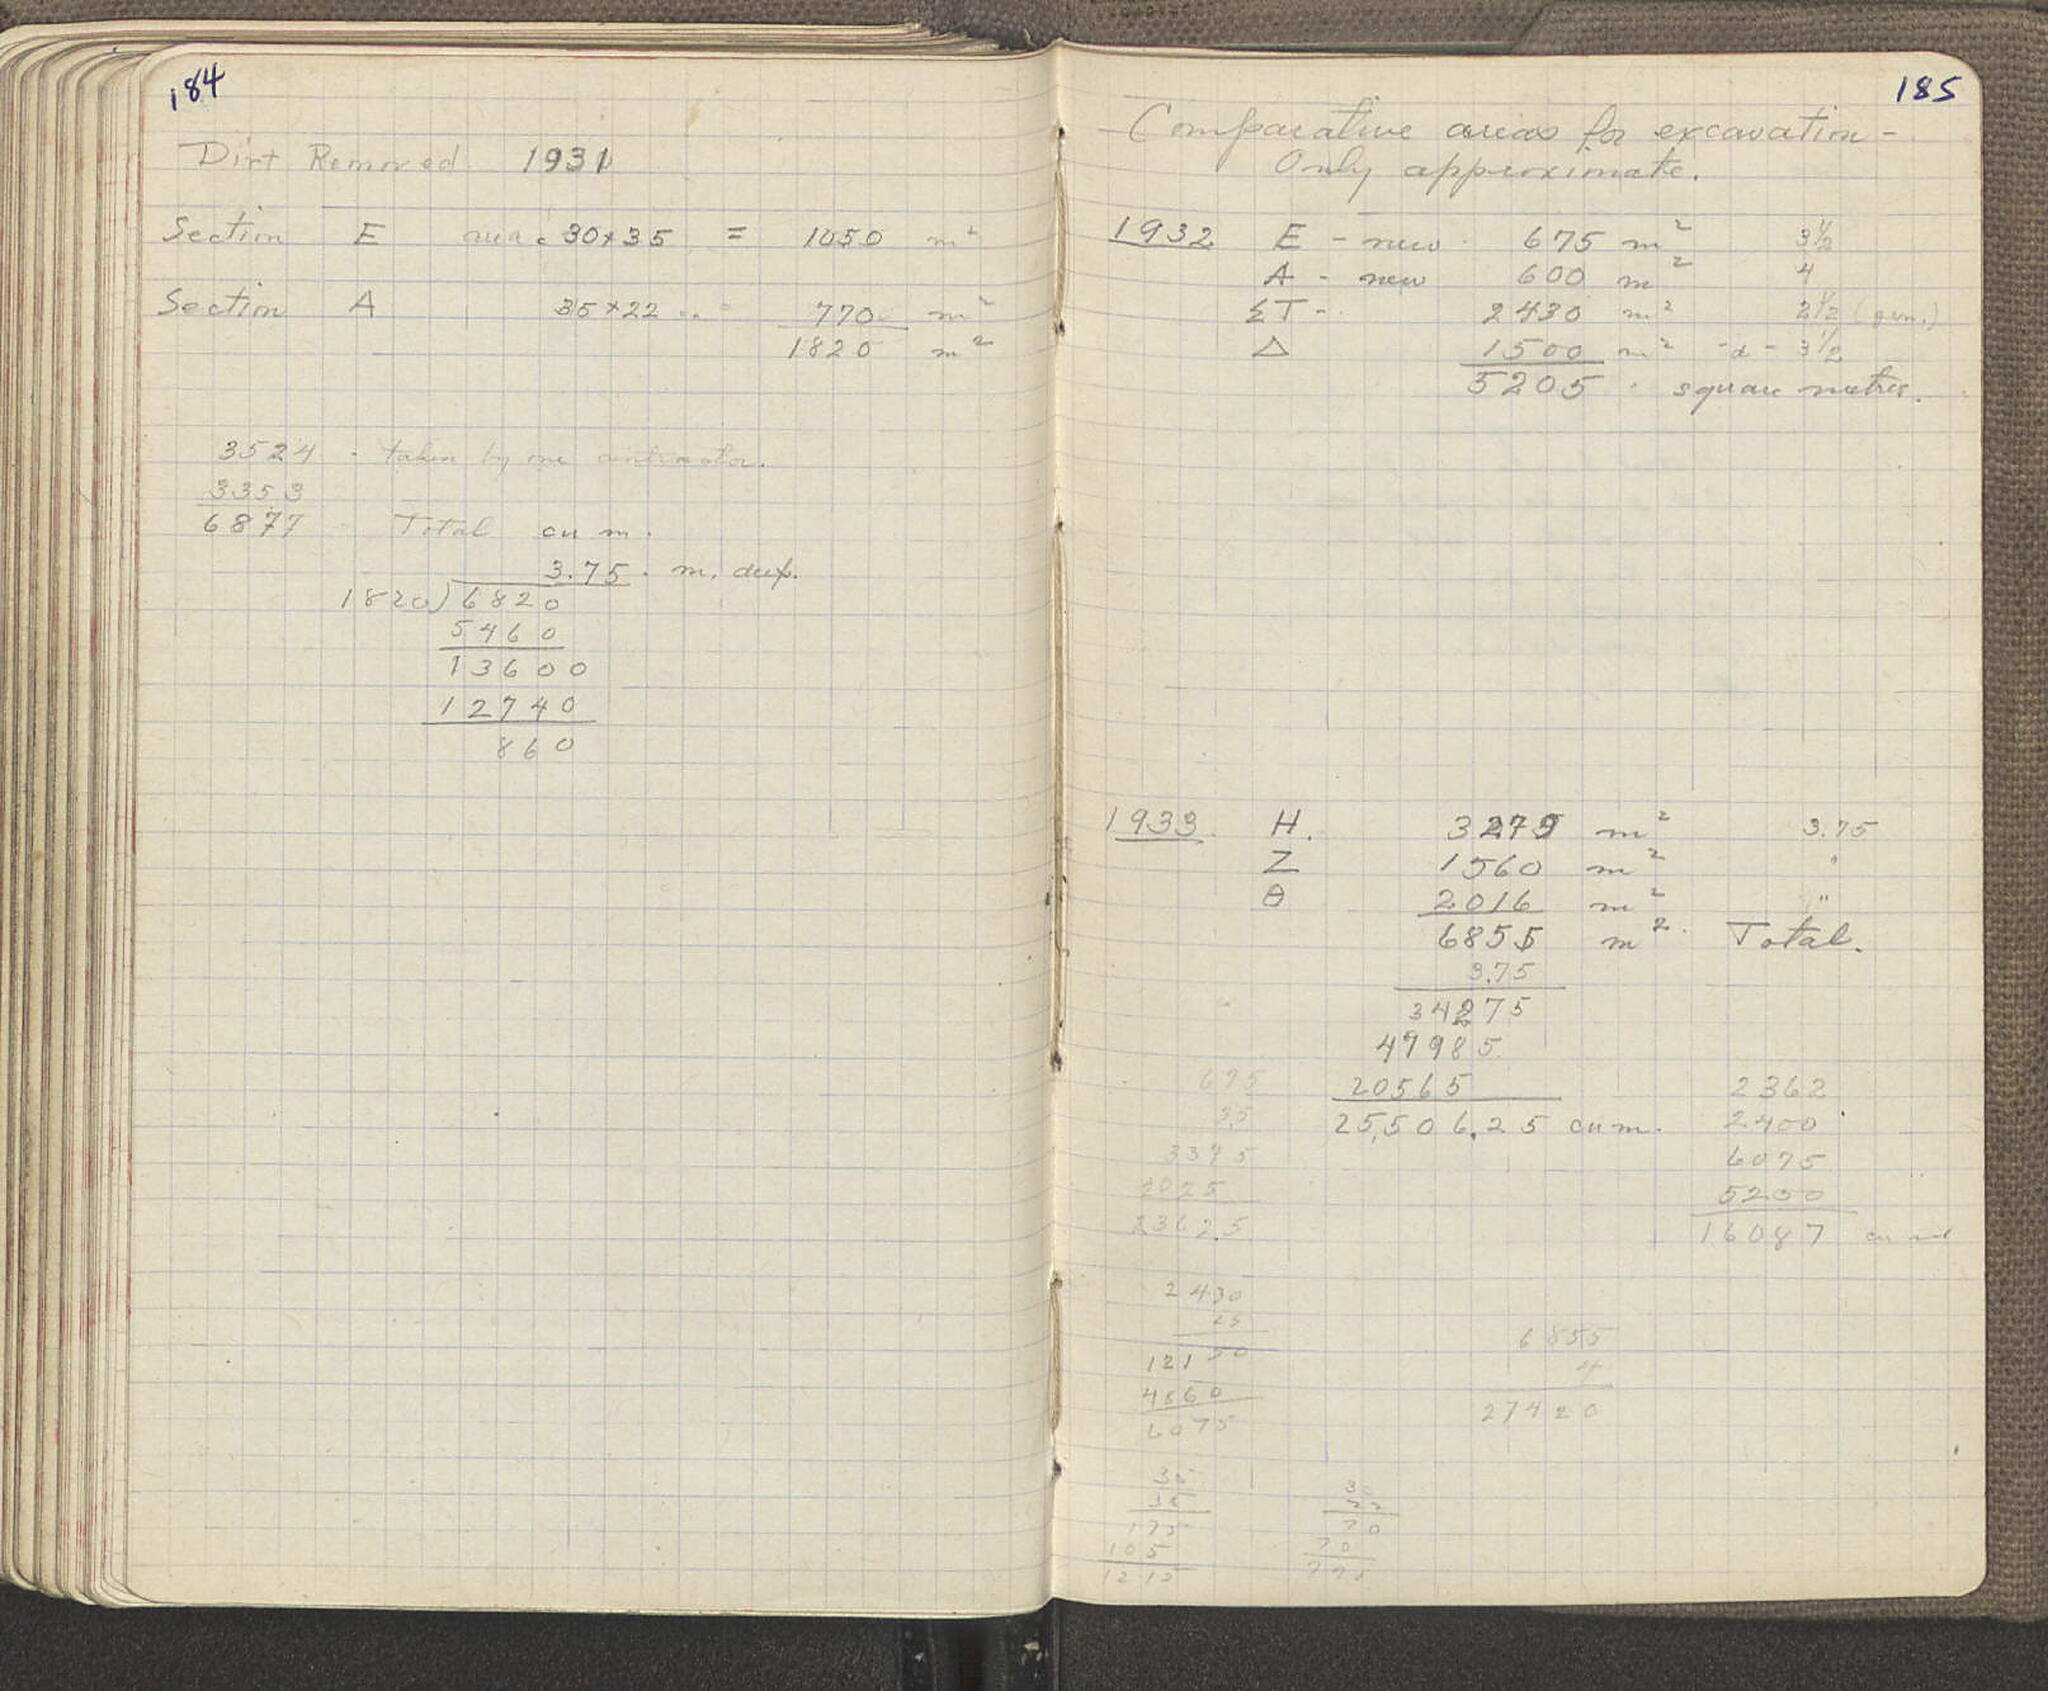 184
Dirt Removed 1931
Section E area. 30x35 = 1050 m²
Section A 35x22 .. = 770 m²
1820 m²
3524 - taken by one contractor.
3353
6877 Total cu m.
3.75. m. deep.
1820)6820
5460
13600
12740
860
185
Comparative areas for excavation -
Only approximate.
1932 E - new 675 m² 3½
A - new 600 m² 4
ΣT - 2430 m² 2½ (gen.)
Δ 1500 m² - d - 3½
5205 square metres.
1933 H. 3279 m² 3.75
Z 1560 m² "
θ 2016 m² "
6855 m² Total.
3.75
34275
47985
20565
25,506.25 cu m.
675
35
3375
2025
2362.5
2362
2400
6075
5200
16087 cu m
2430
25
12150
4860
6075
6855
4
27420
35
35
175
105
1215
22
70
70